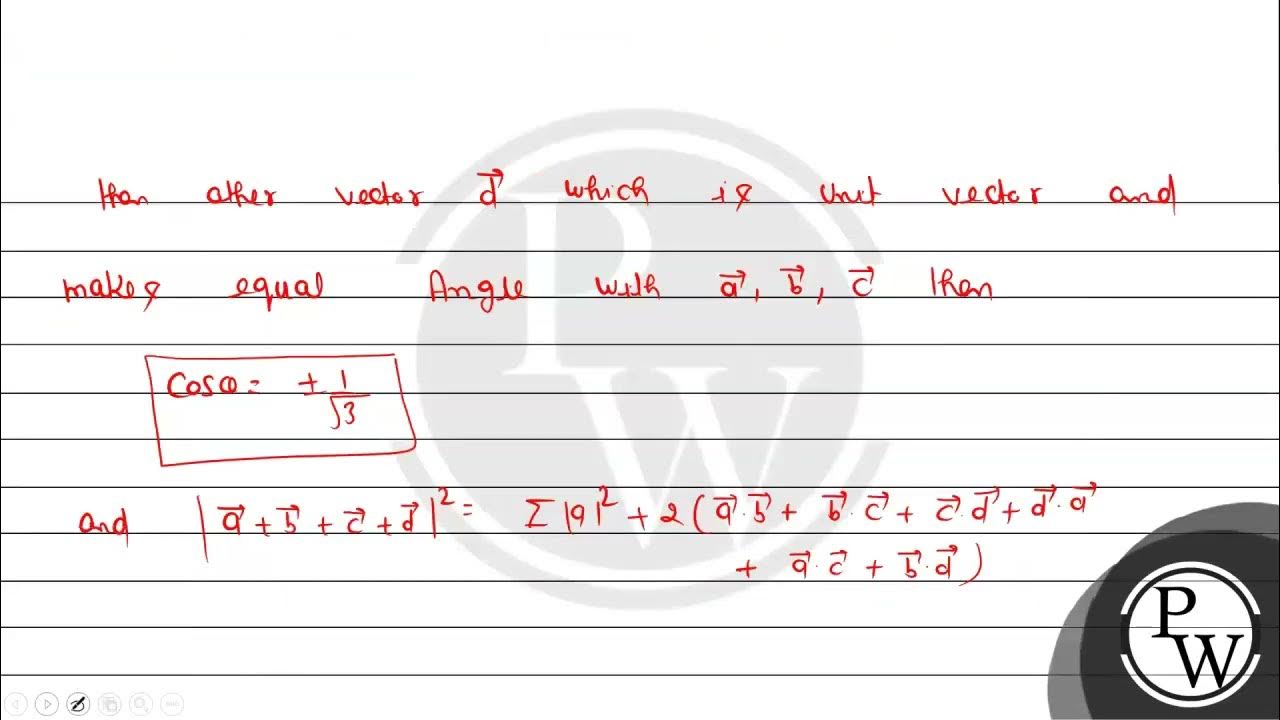 than other vector d⃗ which is unit vector and
makes equal Angle with a⃗, b⃗, c⃗ then
Cosθ = ± 1/√3
and |a⃗ + b⃗ + c⃗ + d⃗|² = Σ|a|² + 2(a⃗·b⃗ + b⃗·c⃗ + c⃗·d⃗ + d⃗·a⃗
+ a⃗·c⃗ + b⃗·d⃗)
PW
PW